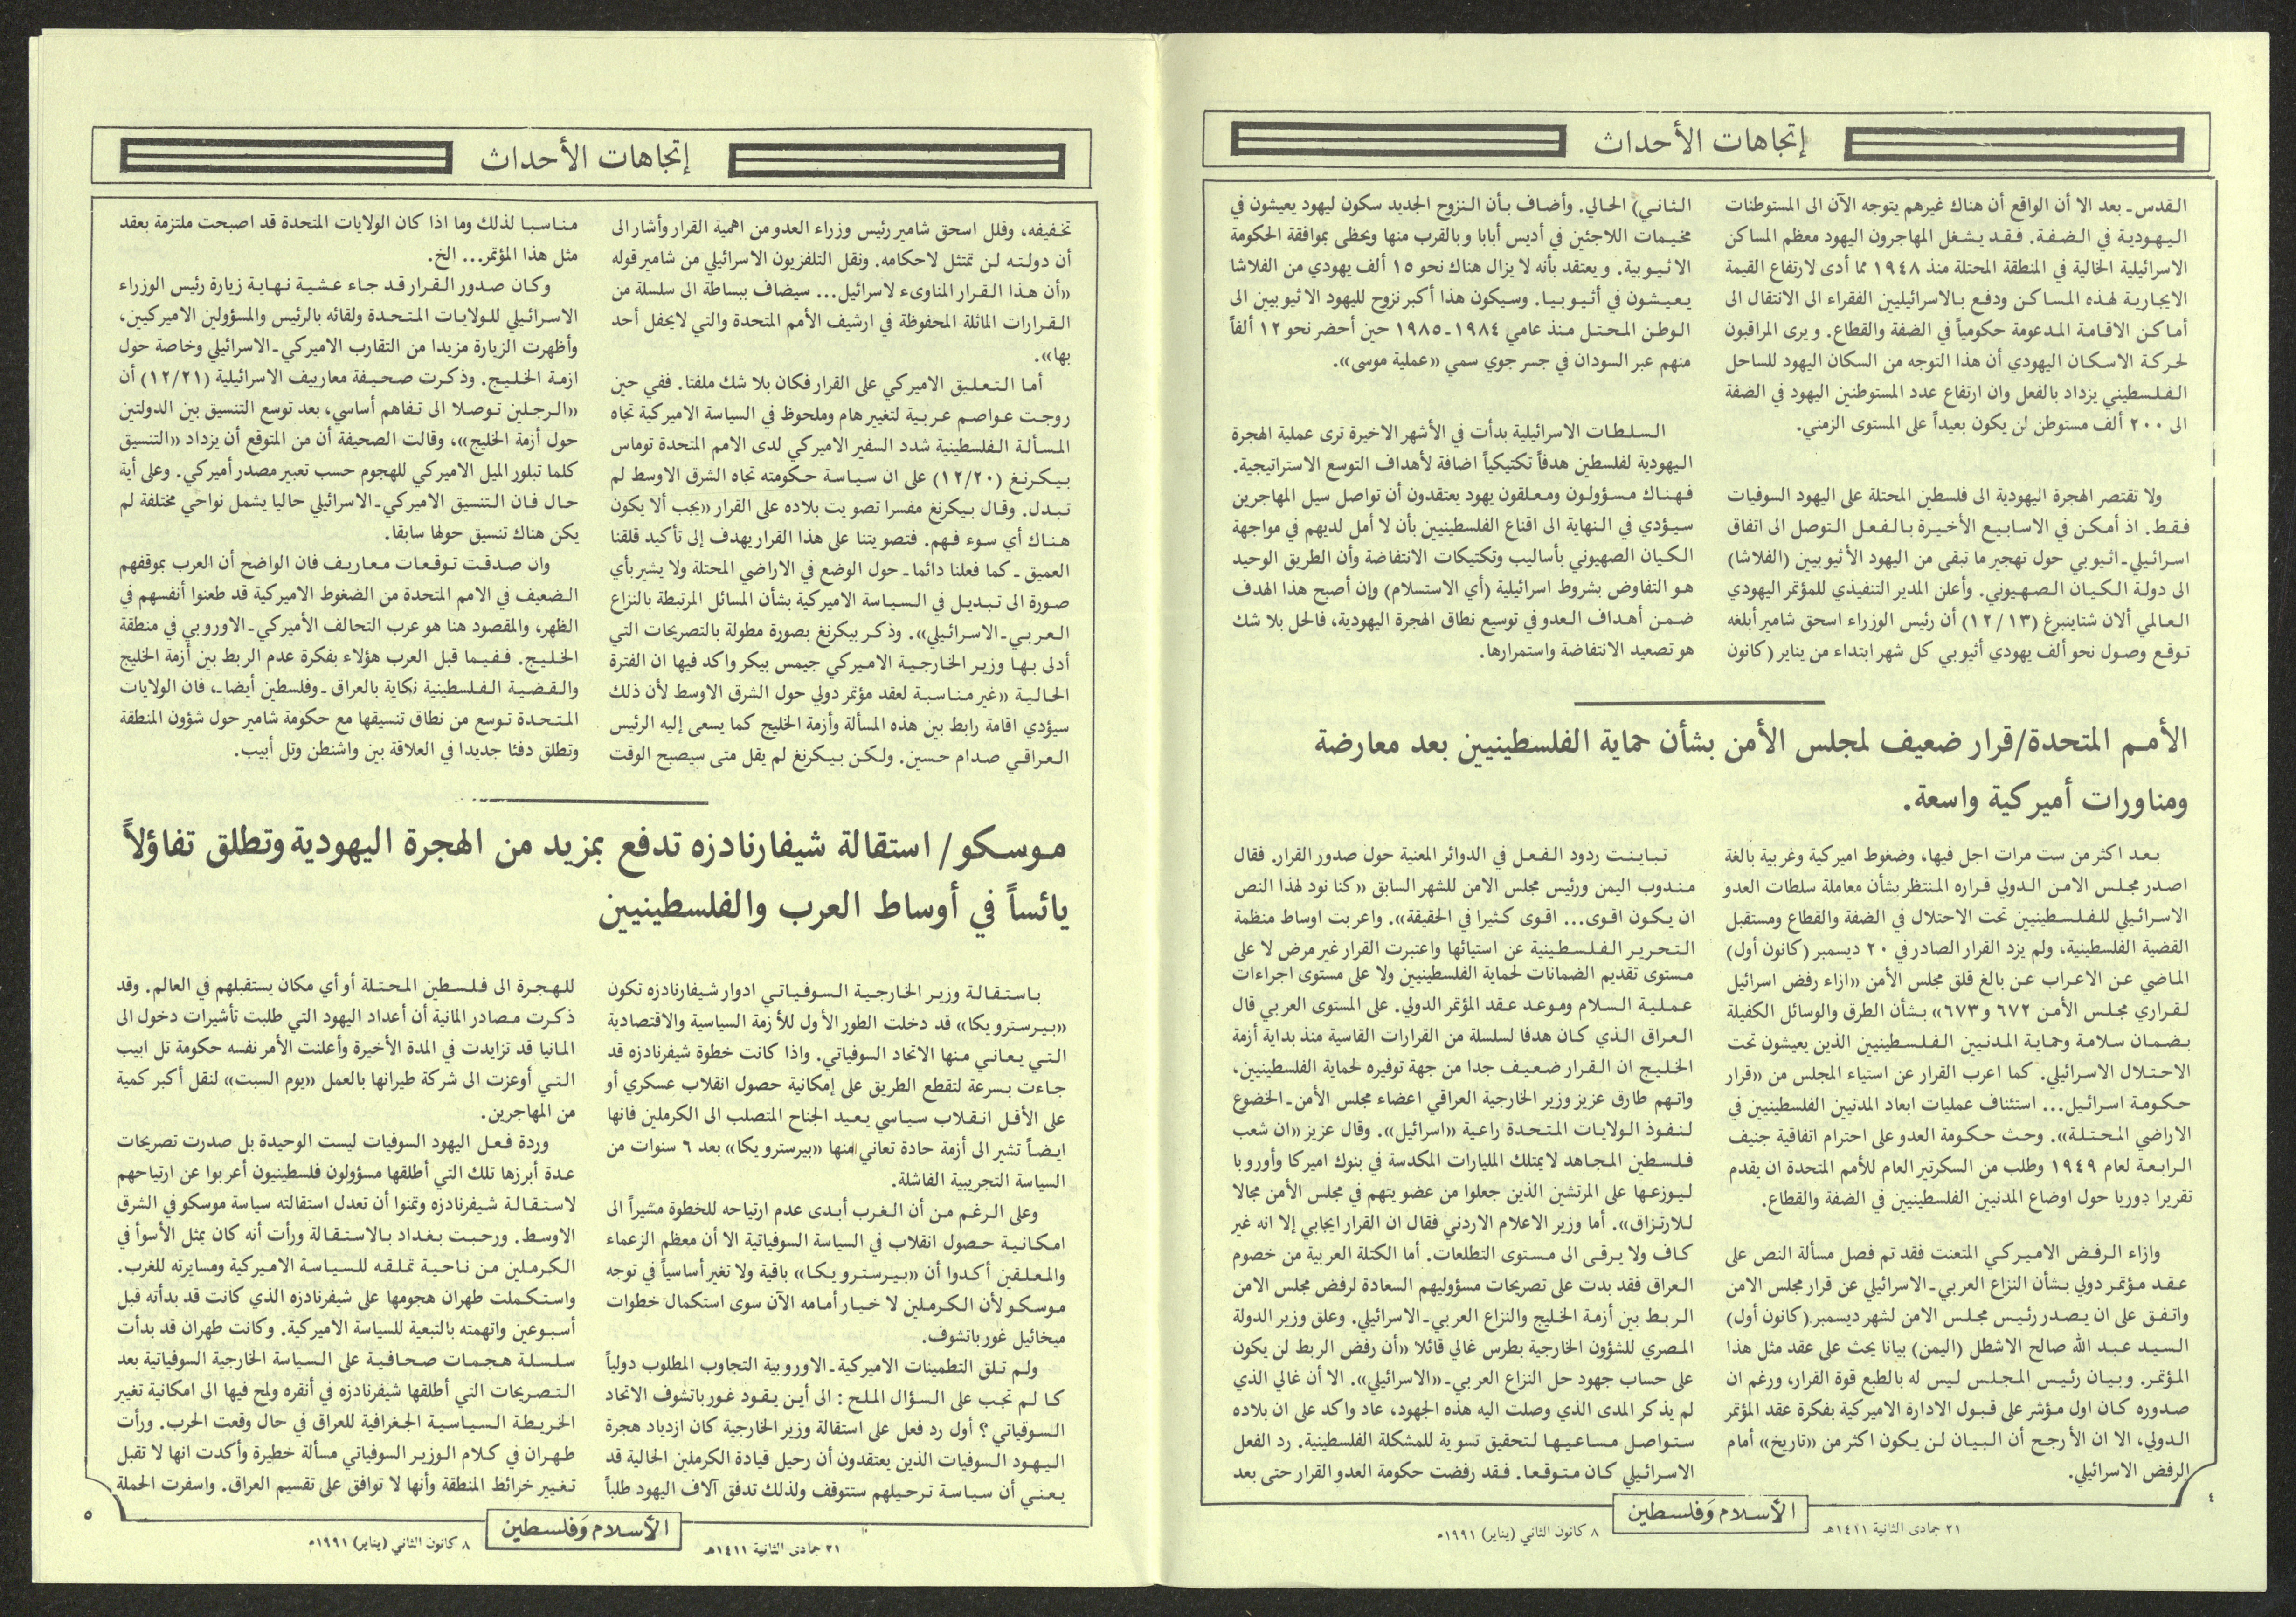 إتجاهات الأحداث
القدس ـ بعد الا أن الواقع أن هناك غيرهم يتوجه الآن الى المستوطنات
اليهودية في الضفة. فقد يشغل المهاجرون اليهود معظم المساكن
الاسرائيلية الخالية في المنطقة المحتلة منذ ١٩٤٨ مما أدى لارتفاع القيمة
الايجارية لهذه المساكن ودفع بالاسرائيليين الفقراء الى الانتقال الى
أماكن الاقامة المدعومة حكومياً في الضفة والقطاع. ويرى المراقبون
لحركة الاسكان اليهودي أن هذا التوجه من السكان اليهود للساحل
الفلسطيني يزداد بالفعل وان ارتفاع عدد المستوطنين اليهود في الضفة
الى ٢٠٠ ألف مستوطن لن يكون بعيداً على المستوى الزمني.
ولا تقتصر الهجرة اليهودية الى فلسطين المحتلة على اليهود السوفيات
فقط. اذ أمكن في الاسابيع الأخيرة بالفعل التوصل الى اتفاق
اسرائيلي ـ اثيوبي حول تهجير ما تبقى من اليهود الأثيوبيين (الفلاشا)
الى دولة الكيان الصهيوني. وأعلن المدير التنفيذي للمؤتمر اليهودي
العالمي ألان شتاينبرغ (١٢/١٣) أن رئيس الوزراء اسحق شامير أبلغه
توقع وصول نحو ألف يهودي أثيوبي كل شهر ابتداء من يناير (كانون
الثاني) الحالي. وأضاف بأن النزوح الجديد سكون ليهود يعيشون في
مخيمات اللاجئين في أديس أبابا وبالقرب منها ويحظى بموافقة الحكومة
الاثيوبية. ويعتقد بأنه لا يزال هناك نحو ١٥ ألف يهودي من الفلاشا
يعيشون في أثيوبيا. وسيكون هذا أكبر نزوح لليهود الاثيوبيين الى
الوطن المحتل منذ عامي ١٩٨٤ ـ ١٩٨٥ حين أحضر نحو ١٢ ألفاً
منهم عبر السودان في جسر جوي سمي «عملية موسى».
السلطات الاسرائيلية بدأت في الأشهر الاخيرة ترى عملية الهجرة
اليهودية لفلسطين هدفاً تكتيكياً اضافة لأهداف التوسع الاستراتيجية.
فهناك مسؤولون ومعلقون يهود يعتقدون أن تواصل سيل المهاجرين
سيؤدي في النهاية الى اقناع الفلسطينيين بأن لا أمل لديهم في مواجهة
الكيان الصهيوني بأساليب وتكتيكات الانتفاضة وأن الطريق الوحيد
هو التفاوض بشروط اسرائيلية (أي الاستسلام) وإن أصبح هذا الهدف
ضمن أهداف العدو في توسيع نطاق الهجرة اليهودية، فالحل بلا شك
هو تصعيد الانتفاضة واستمرارها.
الأمم المتحدة/قرار ضعيف لمجلس الأمن بشأن حماية الفلسطينيين بعد معارضة
ومناورات أميركية واسعة.
بعد اكثر من ست مرات اجل فيها، وضغوط اميركية وغربية بالغة
اصدر مجلس الامن الدولي قراره المنتظر بشأن معاملة سلطات العدو
الاسرائيلي للفلسطينيين تحت الاحتلال في الضفة والقطاع ومستقبل
القضية الفلسطينية، ولم يزد القرار الصادر في ٢٠ ديسمبر (كانون أول)
الماضي عن الاعراب عن بالغ قلق مجلس الأمن «ازاء رفض اسرائيل
لقراري مجلس الأمن ٦٧٢ و٦٧٣» بشأن الطرق والوسائل الكفيلة
بضمان سلامة وحماية المدنيين الفلسطينيين الذين يعيشون تحت
الاحتلال الاسرائيلي. كما اعرب القرار عن استياء المجلس من «قرار
حكومة اسرائيل... استئناف عمليات ابعاد المدنيين الفلسطينيين في
الاراضي المحتلة». وحث حكومة العدو على احترام اتفاقية جنيف
الرابعة لعام ١٩٤٩ وطلب من السكرتير العام للأمم المتحدة ان يقدم
تقريرا دوريا حول اوضاع المدنيين الفلسطينيين في الضفة والقطاع.
وازاء الرفض الاميركي المتعنت فقد تم فصل مسألة النص على
عقد مؤتمر دولي بشأن النزاع العربي ـ الاسرائيلي عن قرار مجلس الامن
واتفق على ان يصدر رئيس مجلس الامن لشهر ديسمبر (كانون أول)
السيد عبد الله صالح الاشطل (اليمن) بيانا يحث على عقد مثل هذا
المؤتمر. وبيان رئيس المجلس ليس له بالطبع قوة القرار، ورغم ان
صدوره كان اول مؤشر على قبول الادارة الاميركية بفكرة عقد المؤتمر
الدولي، الا ان الأرجح أن البيان لن يكون اكثر من «تاريخ» أمام
الرفض الاسرائيلي.
تباينت ردود الفعل في الدوائر المعنية حول صدور القرار. فقال
مندوب اليمن ورئيس مجلس الامن للشهر السابق «كنا نود لهذا النص
ان يكون اقوى... اقوى كثيرا في الحقيقة». واعربت اوساط منظمة
التحرير الفلسطينية عن استيائها واعتبرت القرار غير مرض لا على
مستوى تقديم الضمانات لحماية الفلسطينيين ولا على مستوى اجراءات
عملية السلام وموعد عقد المؤتمر الدولي. على المستوى العربي قال
العراق الذي كان هدفا لسلسلة من القرارات القاسية منذ بداية أزمة
الخليج ان القرار ضعيف جدا من جهة توفيره لحماية الفلسطينيين،
واتهم طارق عزيز وزير الخارجية العراقي اعضاء مجلس الأمن ـ الخضوع
لنفوذ الولايات المتحدة راعية «اسرائيل». وقال عزيز «ان شعب
فلسطين المجاهد لا يمتلك المليارات المكدسة في بنوك اميركا وأوروبا
ليوزعها على المرتشين الذين جعلوا من عضويتهم في مجلس الأمن مجالا
للارتزاق». أما وزير الاعلام الاردني فقال ان القرار ايجابي إلا انه غير
كاف ولا يرقى الى مستوى التطلعات. أما الكتلة العربية من خصوم
العراق فقد بدت على تصريحات مسؤوليهم السعادة لرفض مجلس الامن
الربط بين أزمة الخليج والنزاع العربي ـ الاسرائيلي. وعلق وزير الدولة
المصري للشؤون الخارجية بطرس غالي قائلا «أن رفض الربط لن يكون
على حساب جهود حل النزاع العربي ـ «الاسرائيلي». الا أن غالي الذي
لم يذكر المدى الذي وصلت اليه هذه الجهود، عاد واكد على ان بلاده
ستواصل مساعيها لتحقيق تسوية للمشكلة الفلسطينية. رد الفعل
الاسرائيلي كان متوقعا. فقد رفضت حكومة العدو القرار حتى بعد
٤
٢١ جمادى الثانية ١٤١١هـ
الأسلام وَفلسطين
٨ كانون الثاني (يناير) ١٩٩١م
إتجاهات الأحداث
تخفيفه، وقلل اسحق شامير رئيس وزراء العدو من اهمية القرار وأشار الى
أن دولته لن تمتثل لاحكامه. ونقل التلفزيون الاسرائيلي من شامير قوله
«أن هذا القرار المناوىء لاسرائيل... سيضاف ببساطة الى سلسلة من
القرارات المماثلة المحفوظة في ارشيف الأمم المتحدة والتي لا يحفل أحد
بها».
أما التعليق الاميركي على القرار فكان بلا شك ملفتا. ففي حين
روجت عواصم عربية لتغيير هام وملحوظ في السياسة الاميركية تجاه
المسألة الفلسطينية شدد السفير الاميركي لدى الامم المتحدة توماس
بيكرنغ (١٢/٢٠) على ان سياسة حكومته تجاه الشرق الاوسط لم
تبدل. وقال بيكرنغ مفسرا تصويت بلاده على القرار «يجب ألا يكون
هناك أي سوء فهم. فتصويتنا على هذا القرار يهدف إلى تأكيد قلقنا
العميق ـ كما فعلنا دائما ـ حول الوضع في الاراضي المحتلة ولا يشير بأي
صورة الى تبديل في السياسة الاميركية بشأن المسائل المرتبطة بالنزاع
العربي ـ الاسرائيلي». وذكر بيكرنغ بصورة مطولة بالتصريحات التي
أدلى بها وزير الخارجية الاميركي جيمس بيكر واكد فيها ان الفترة
الحالية «غير مناسبة لعقد مؤتمر دولي حول الشرق الاوسط لأن ذلك
سيؤدي اقامة رابط بين هذه المسألة وأزمة الخليج كما يسعى إليه الرئيس
العراقي صدام حسين. ولكن بيكرنغ لم يقل متى سيصبح الوقت
مناسبا لذلك وما اذا كان الولايات المتحدة قد اصبحت ملتزمة بعقد
مثل هذا المؤتمر... الخ.
وكان صدور القرار قد جاء عشية نهاية زيارة رئيس الوزراء
الاسرائيلي للولايات المتحدة ولقائه بالرئيس والمسؤولين الاميركيين،
وأظهرت الزيارة مزيدا من التقارب الاميركي ـ الاسرائيلي وخاصة حول
ازمة الخليج. وذكرت صحيفة معاريف الاسرائيلية (١٢/٢١) أن
«الرجلين توصلا الى تفاهم أساسي، بعد توسع التنسيق بين الدولتين
حول أزمة الخليج»، وقالت الصحيفة أن من المتوقع أن يزداد «التنسيق
كلما تبلور الميل الاميركي للهجوم حسب تعبير مصدر أميركي. وعلى أية
حال فان التنسيق الاميركي ـ الاسرائيلي حاليا يشمل نواحي مختلفة لم
يكن هناك تنسيق حولها سابقا.
وان صدقت توقعات معاريف فان الواضح أن العرب بموقفهم
الضعيف في الامم المتحدة من الضغوط الاميركية قد طعنوا أنفسهم في
الظهر، والمقصود هنا هو عرب التحالف الأميركي ـ الاوروبي في منطقة
الخليج. ففيما قبل العرب هؤلاء بفكرة عدم الربط بين أزمة الخليج
والقضية الفلسطينية نكاية بالعراق ـ وفلسطين أيضا ـ، فان الولايات
المتحدة توسع من نطاق تنسيقها مع حكومة شامير حول شؤون المنطقة
وتطلق دفئا جديدا في العلاقة بين واشنطن وتل أبيب.
موسكو/ استقالة شيفارنادزه تدفع بمزيد من الهجرة اليهودية وتطلق تفاؤلاً
يائساً في أوساط العرب والفلسطينيين
باستقالة وزير الخارجية السوفياتي ادوار شيفارنادزه تكون
«بيرسترويكا» قد دخلت الطور الأول للأزمة السياسية والاقتصادية
التي يعاني منها الاتحاد السوفياتي. واذا كانت خطوة شيفرنادزه قد
جاءت بسرعة لتقطع الطريق على إمكانية حصول انقلاب عسكري أو
على الأقل انقلاب سياسي يعيد الجناح المتصلب الى الكرملين فانها
ايضاً تشير الى أزمة حادة تعاني منها «بيرسترويكا» بعد ٦ سنوات من
السياسة التجريبية الفاشلة.
وعلى الرغم من أن الغرب أبدى عدم ارتياحه للخطوة مشيراً الى
امكانية حصول انقلاب في السياسة السوفياتية الا أن معظم الزعماء
والمعلقين أكدوا أن «بيرسترويكا» باقية ولا تغير أساسياً في توجه
موسكو لأن الكرملين لا خيار أمامه الآن سوى استكمال خطوات
ميخائيل غورباتشوف.
ولم تلق التطمينات الاميركية ـ الاوروبية التجاوب المطلوب دولياً
كما لم تجب على السؤال الملح: الى أين يقود غورباتشوف الاتحاد
السوفياتي؟ أول رد فعل على استقالة وزير الخارجية كان ازدياد هجرة
اليهود السوفيات الذين يعتقدون أن رحيل قيادة الكرملين الحالية قد
يعني أن سياسة ترحيلهم ستتوقف ولذلك تدفق آلاف اليهود طلباً
للهجرة الى فلسطين المحتلة أو أي مكان يستقبلهم في العالم. وقد
ذكرت مصادر المانية أن أعداد اليهود التي طلبت تأشيرات دخول الى
المانيا قد تزايدت في المدة الأخيرة وأعلنت الأمر نفسه حكومة تل ابيب
التي أوعزت الى شركة طيرانها بالعمل «يوم السبت» لنقل أكبر كمية
من المهاجرين.
وردة فعل اليهود السوفيات ليست الوحيدة بل صدرت تصريحات
عدة أبرزها تلك التي أطلقها مسؤولون فلسطينيون أعربوا عن ارتياحهم
لاستقالة شيفرنادزه وتمنوا أن تعدل استقالته سياسة موسكو في الشرق
الاوسط. ورحبت بغداد بالاستقالة ورأت أنه كان يمثل الأسوأ في
الكرملين من ناحية تملقه للسياسة الاميركية ومسايرته للغرب.
واستكملت طهران هجومها على شيفرنادزه الذي كانت قد بدأته قبل
أسبوعين واتهمته بالتبعية للسياسة الاميركية. وكانت طهران قد بدأت
سلسلة هجمات صحافية على السياسة الخارجية السوفياتية بعد
التصريحات التي أطلقها شيفرنادزه في أنقره ولمح فيها الى امكانية تغيير
الخريطة السياسية الجغرافية للعراق في حال وقعت الحرب. ورأت
طهران في كلام الوزير السوفياتي مسألة خطيرة وأكدت انها لا تقبل
تغيير خرائط المنطقة وأنها لا توافق على تقسيم العراق. واسفرت الحملة
٢١ جمادى الثانية ١٤١١هـ
الأسلام وَفلسطين
٨ كانون الثاني (يناير) ١٩٩١م
٥